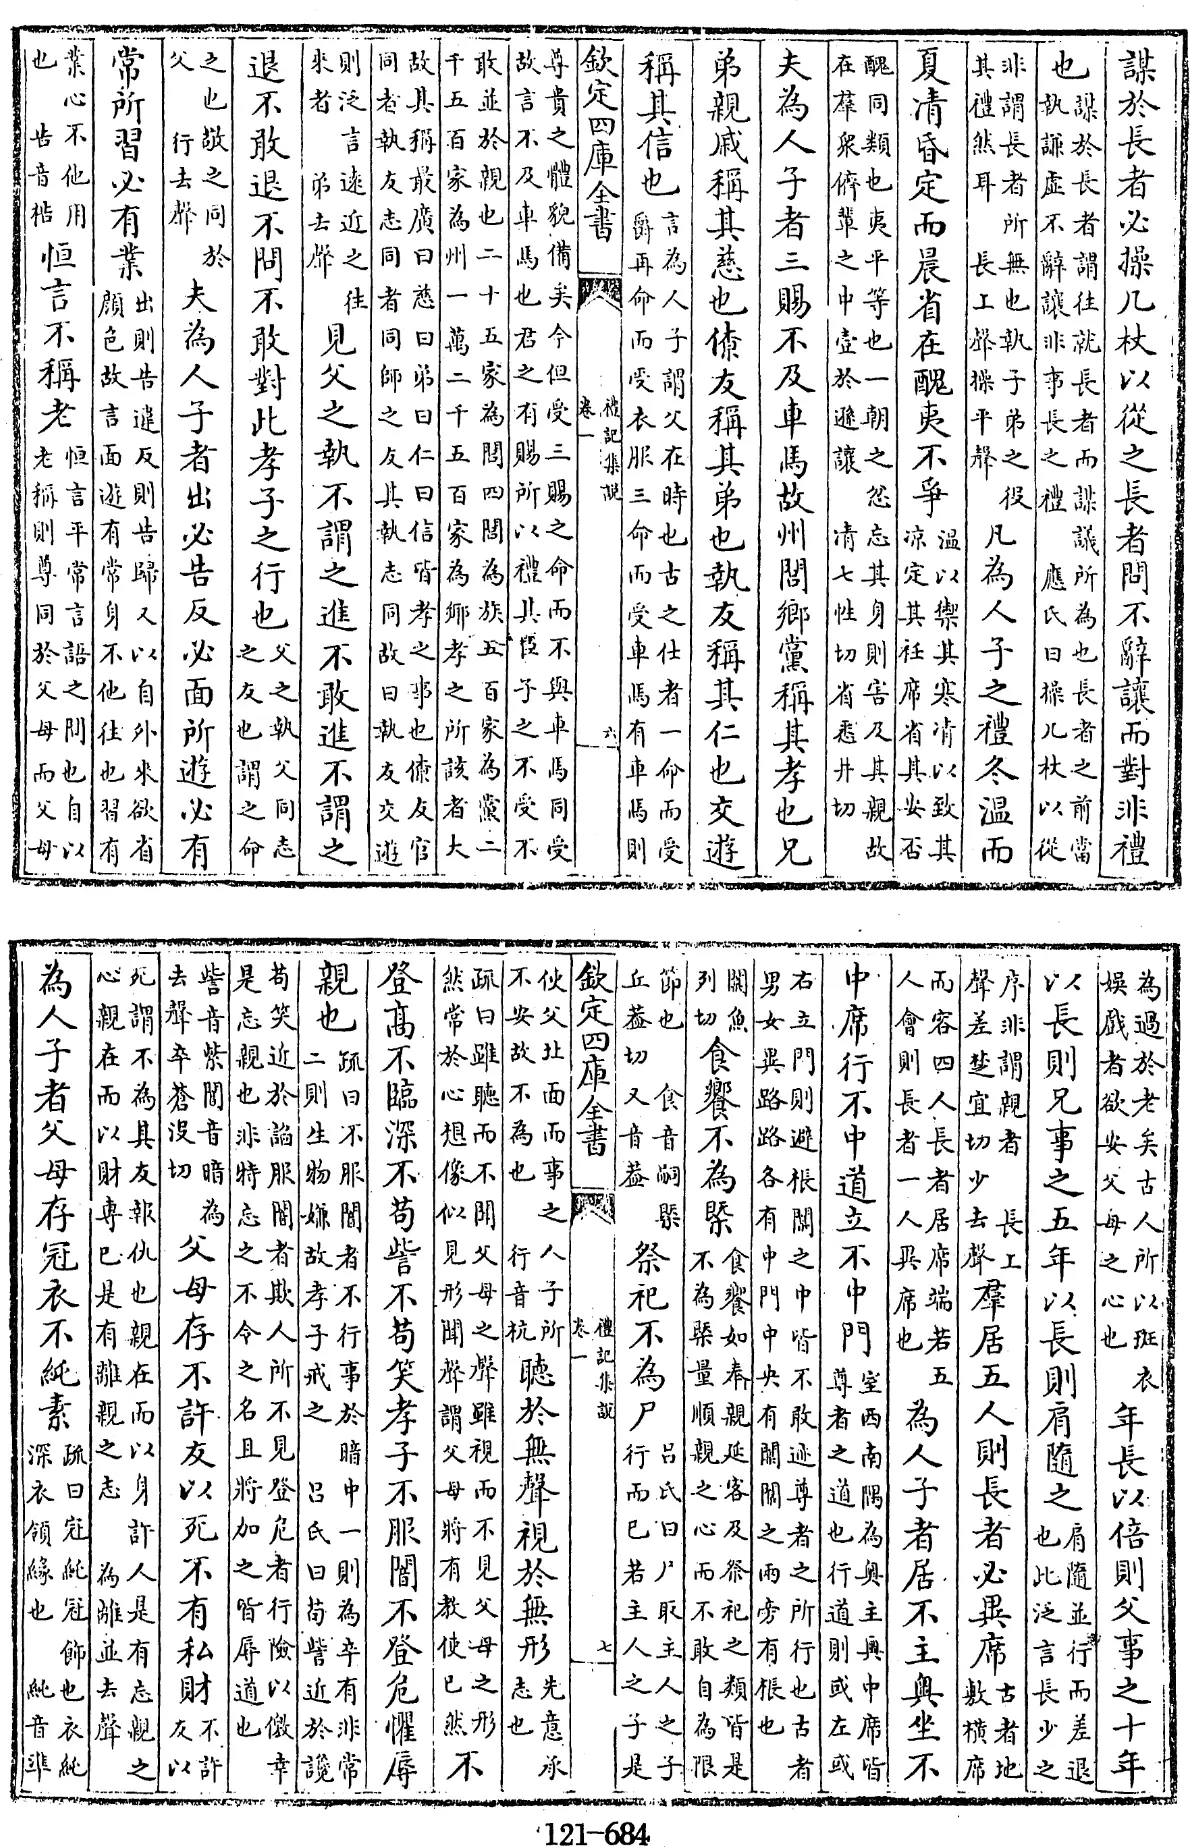 謀於長者必操几杖以從之長者問不辭讓而對非禮
也謀於長者謂往就長者而謀議所為也長者之前當執謙虚不辭讓非事長之禮 應氏曰操几杖以從
非謂長者所無也執子弟之役其禮然耳 長上聲操平聲凡為人子之禮冬温而
夏凊昏定而晨省在醜夷不爭温以禦其寒凊以致其凉定其衽席省其安否
醜同類也夷平等也一朝之忿忘其身則害及其親故在羣衆儕輩之中壹於遜讓 凊七性切省悉井切
夫為人子者三賜不及車馬故州閭鄉黨稱其孝也兄
弟親戚稱其慈也僚友稱其弟也執友稱其仁也交遊
稱其信也言為人子謂父在時也古之仕者一命而受爵再命而受衣服三命而受車馬有車馬則
欽定四庫全書 禮記集說 卷一 六
尊貴之體貌備矣今但受三賜之命而不與車馬同受故言不及車馬也君之有賜所以禮其臣子之不受不
敢並於親也二十五家為閭四閭為族五百家為黨二千五百家為州一萬二千五百家為鄉孝之所該者大
故其稱最廣曰慈曰弟曰仁曰信皆孝之事也僚友官同者執友志同者同師之友其執志同故曰執友交遊
則泛言遠近之往來者 弟去聲見父之執不謂之進不敢進不謂之
退不敢退不問不敢對此孝子之行也父之執父同志之友也謂之命
之也敬之同於父 行去聲夫為人子者出必告反必面所遊必有
常所習必有業出則告違反則告歸又以自外來欲省顔色故言面遊有常身不他往也習有
業心不他用也 告音梏恒言不稱老恒言平常言語之間也自以老稱則尊同於父母而父母
為過於老矣古人所以斑衣娛戲者欲安父母之心也年長以倍則父事之十年
以長則兄事之五年以長則肩隨之肩隨並行而差退也此泛言長少之
序非謂親者 長上聲差楚宜切少去聲羣居五人則長者必異席古者地敷横席
而容四人長者居席端若五人會則長者一人異席也為人子者居不主奧坐不
中席行不中道立不中門室西南隅為奧主奧中席皆尊者之道也行道則或左或
右立門則避棖闑之中皆不敢迹尊者之所行也古者男女異路路各有中門中央有闑闑之兩旁有棖也
闑魚列切食饗不為槩食饗如奉親延客及祭祀之類皆是不為槩量順親之心而不敢自為限
節也 食音嗣槩丘葢切又音葢祭祀不為尸吕氏曰尸取主人之子行而已若主人之子是
欽定四庫全書 禮記集說 卷一 七
使父北面而事之人子所不安故不為也 行音杭聽於無聲視於無形先意承志也
疏曰雖聽而不聞父母之聲雖視而不見父母之形然常於心想像似見形聞聲謂父母將有教使已然不
登高不臨深不苟訾不苟笑孝子不服闇不登危懼辱
親也疏曰不服闇者不行事於暗中一則為卒有非常二則生物嫌故孝子戒之 吕氏曰苟訾近於讒
苟笑近於諂服闇者欺人所不見登危者行險以儌幸是忘親也非特忘之不令之名且將加之皆辱道也
訾音紫闇音暗為去聲卒蒼沒切父母存不許友以死不有私財不許友以
死謂不為其友報仇也親在而以身許人是有忘親之心親在而以財專已是有離親之志 為離並去聲
為人子者父母存冠衣不純素疏曰冠純冠飾也衣純深衣領緣也 純音準
121-684